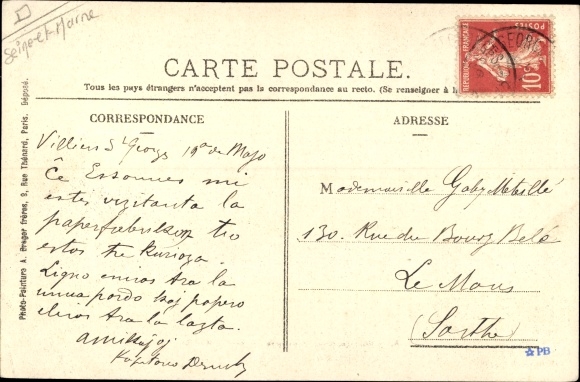 Seine-et-Marne
CARTE POSTALE.
Tous les pays étrangers n'acceptent pas la correspondance au recto. (Se renseigner à la
CORRESPONDANCE
ADRESSE
Villiers St Georges 19a de Majo
Ĉe Essonnes mi
estis vizitanta la
paperfabrikon tio
estas tre kurioza.
Ligno eniras tra la
unua pordo kaj papero
eliras tra la lasta.
amikaĵoj
Kapitano
Mademoiselle Gaby Métaillé
130. Rue du Bourg Belé
Le Mans
(Sarthe)
REPUBLIQUE FRANÇAISE
POSTES
10
Photo-Peinture A. Breger frères, 9, Rue Thénard, Paris. Déposé.
PB